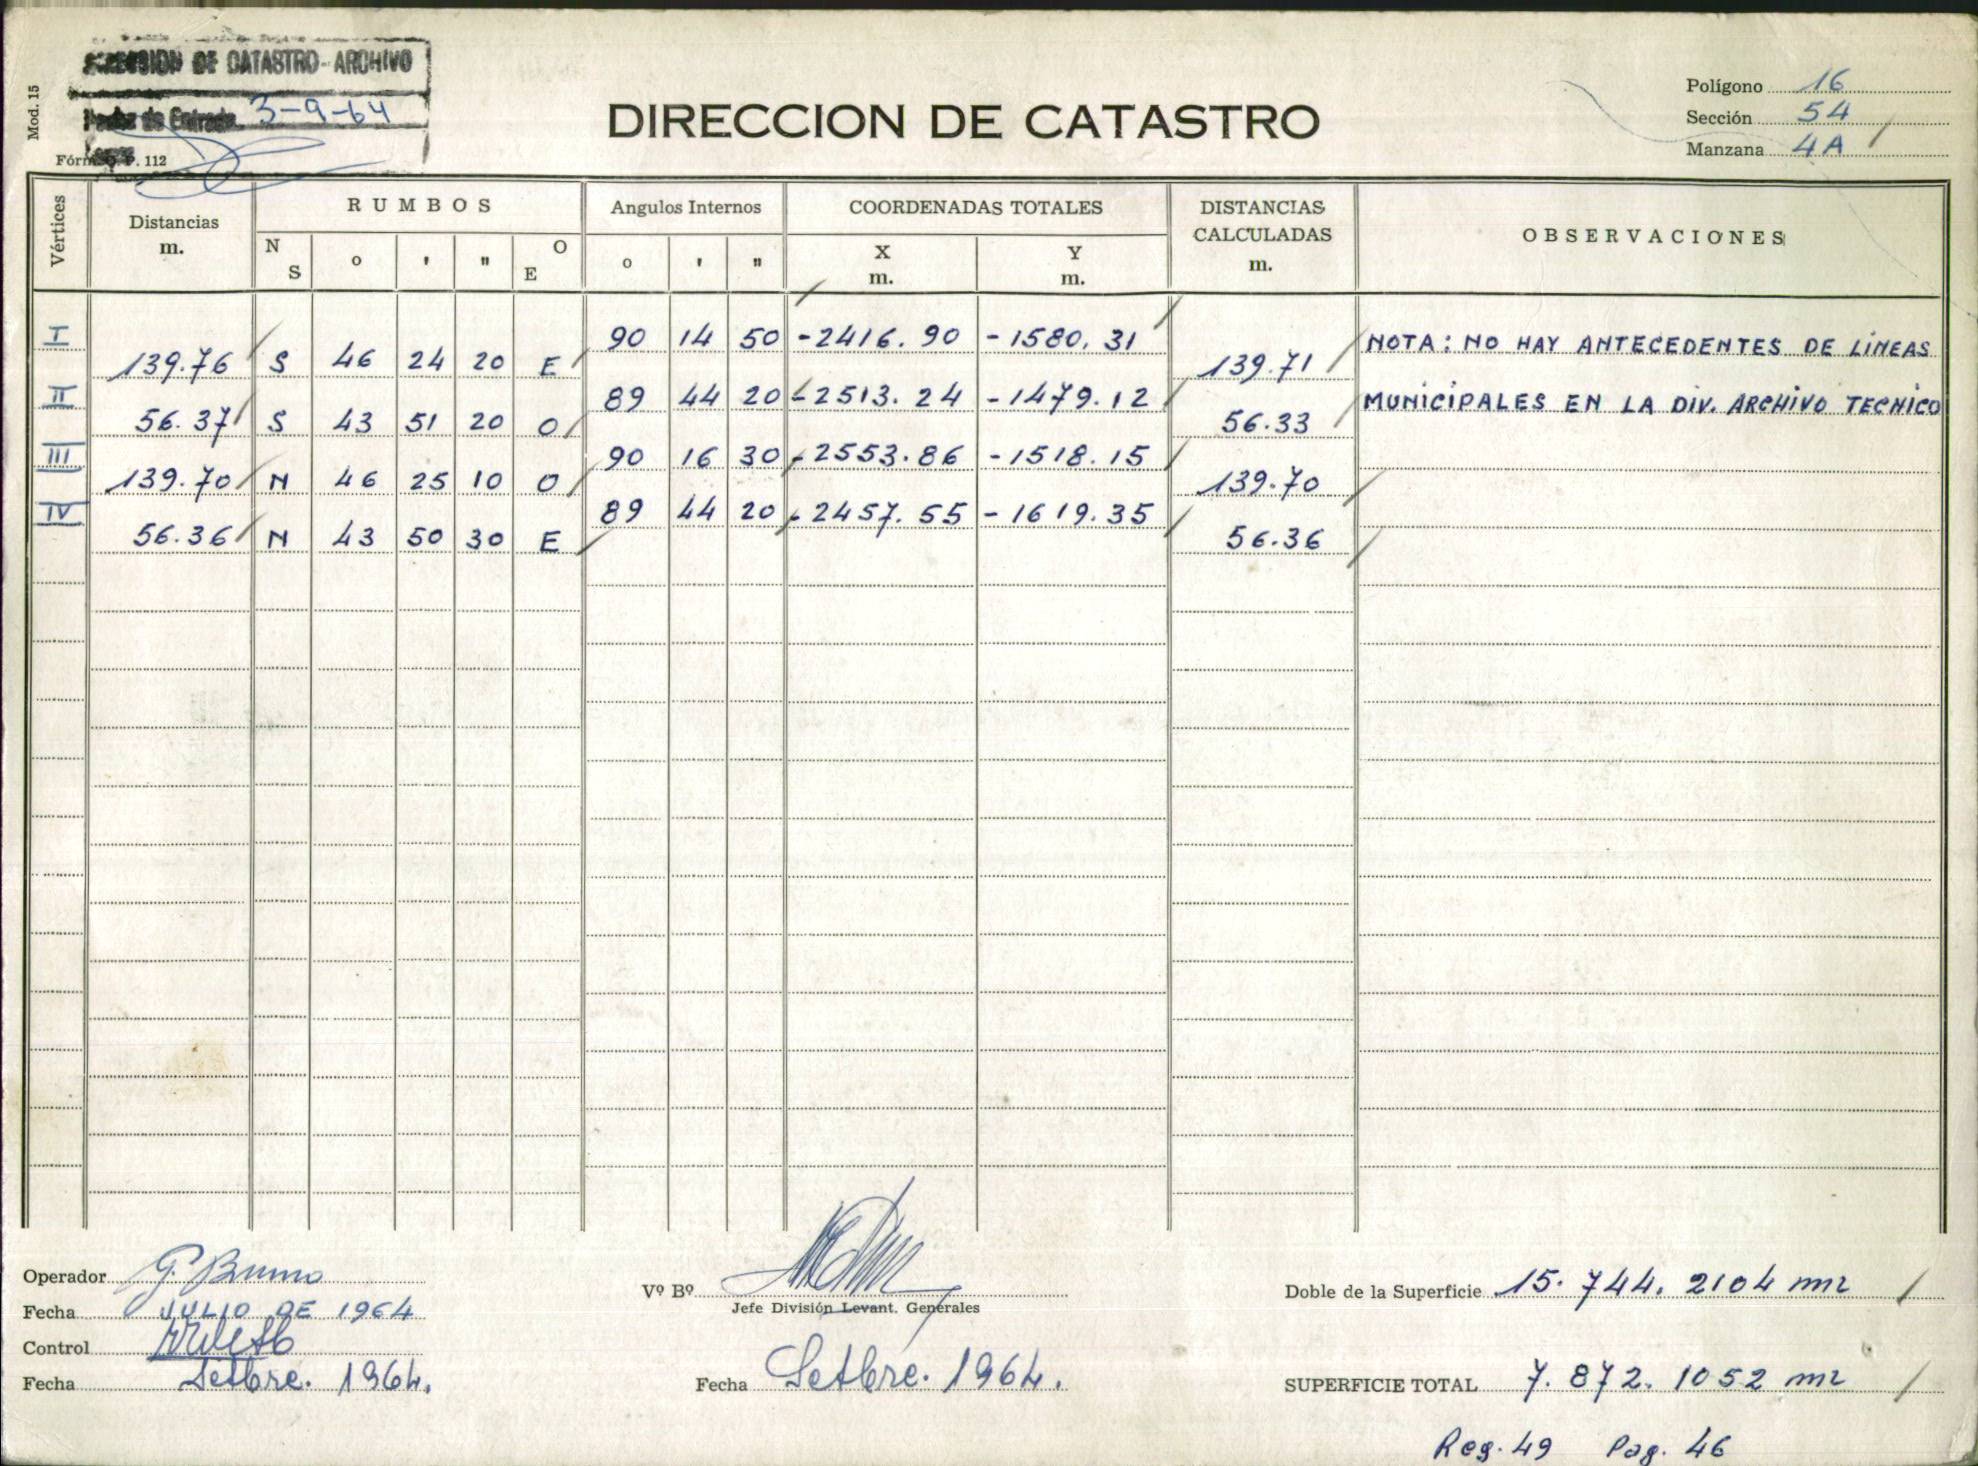 DIVISION DE CATASTRO - ARCHIVO
Fecha de Entrada 3-9-64
Mod. 15
P. 112
DIRECCION DE CATASTRO
Polígono 16
Sección 54
Manzana 4A
Vértices
Distancias m.
RUMBOS
N S ° ' " O E
Angulos Internos
° ' "
COORDENADAS TOTALES
X m. Y m.
DISTANCIAS CALCULADAS m.
OBSERVACIONES
I 90 14 50 -2416.90 -1580.31
139.76 S 46 24 20 E 139.71
II 89 44 20 -2513.24 -1479.12
56.37 S 43 51 20 O 56.33
III 90 16 30 -2553.86 -1518.15
139.70 N 46 25 10 O 139.70
IV 89 44 20 -2457.55 -1619.35
56.36 N 43 50 30 E 56.36
NOTA: NO HAY ANTECEDENTES DE LÍNEAS
MUNICIPALES EN LA DIV. ARCHIVO TECNICO
Operador G. Bruno
Fecha JULIO DE 1964
Control
Fecha Setbre. 1964.
Vº Bº
Jefe División Levant. Generales
Fecha Setbre. 1964.
Doble de la Superficie 15.744.2104 m2
SUPERFICIE TOTAL 7.872.1052 m2
Reg. 49 Pag. 46